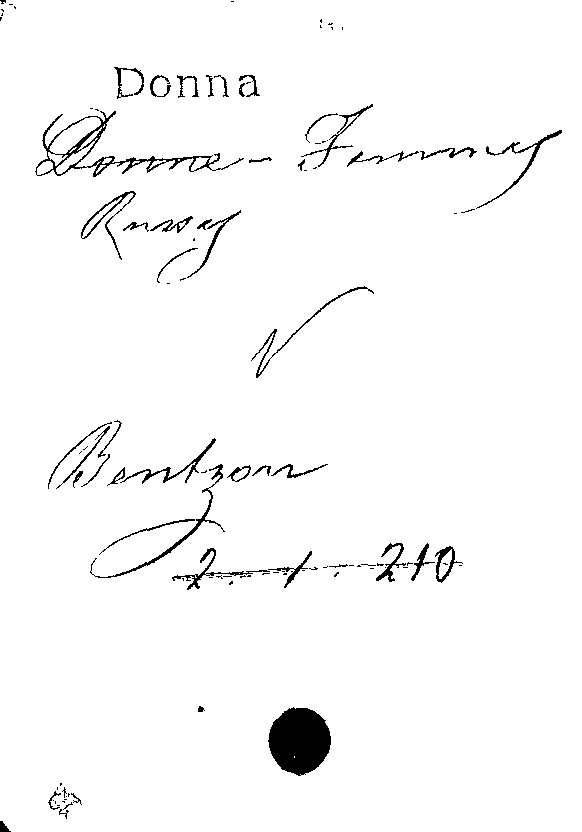 Donna
Donne - Femmes
Russes
V
Bentzon
2. 1. 210